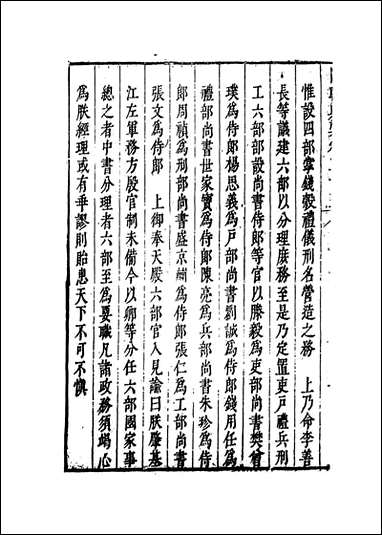 惟設四部掌錢穀禮儀刑名營造之務　上乃命李善
長等議建六部以分理庶務至是乃定置吏戶禮兵刑
工六部部設尚書侍郎等官以滕毅為吏部尚書樊曾
璞為侍郎楊思義為戶部尚書劉誠為侍郎錢用任為
禮部尚書世家寶為侍郎陳亮為兵部尚書朱珍為侍
郎周禎為刑部尚書盛京為侍郎張仁為工部尚書
張文為侍郎　上御奉天殿六部官入見諭曰朕肇基
江左軍務方殷官制未備今以卿等分任六部國家事
總之者中書分理者六部至為要職凡諸政務須竭心
為朕經理或有乖謬則貽患天下不可不慎